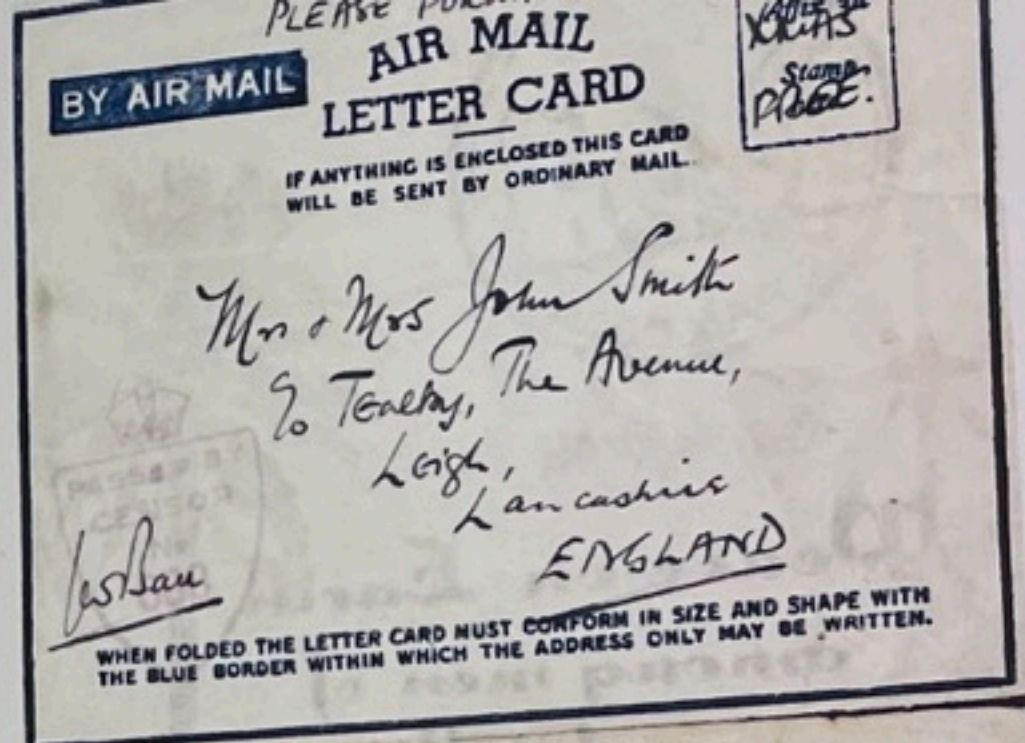 PLEASE
AIR MAIL
LETTER CARD
BY AIR MAIL
XMAS
Stamp
IF ANYTHING IS ENCLOSED THIS CARD
WILL BE SENT BY ORDINARY MAIL.
Mr & Mrs John Smith
The Avenue,
Leigh,
Lancashire
ENGLAND
PASSED BY
CENSOR
WHEN FOLDED THE LETTER CARD MUST CONFORM IN SIZE AND SHAPE WITH
THE BLUE BORDER WITHIN WHICH THE ADDRESS ONLY MAY BE WRITTEN.